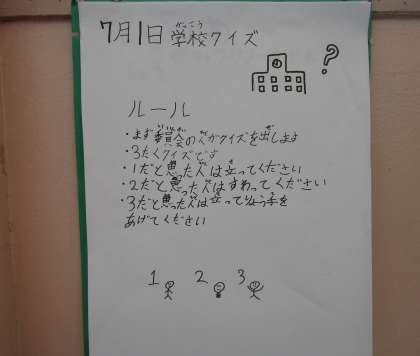 7月1日 学校クイズ
ルール
・まず委員会の人がクイズを出します
・3たくクイズです
・1だと思った人は立ってください
・2だと思った人はすわってください
・3だと思った人は立ってりょう手を
あげてください
1 2 3